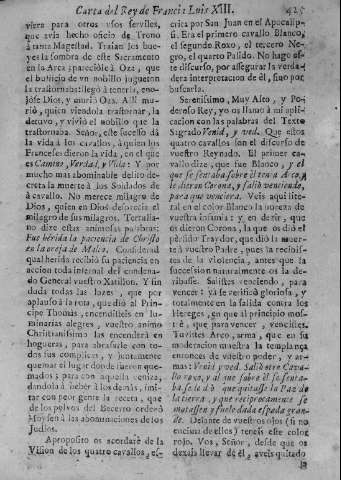 Carta del Rey de Francia Luis XIII. 425
viera para otros usos serviles,
que avia hecho oficio de Trono
á tanta Magestad. Traían los bue-
yes la sombra de este Sacramento
en la Arca parecióle á Oza, que
el bullicio de un nobillo jugueton
la trastornaba: llegó á tenerla, eno-
jóse Dios, y murió Oza. Alli mu-
rió, quien viendola trastornar, la
detuvo, y vivió el nobillo que la
trastornaba. Señor, este sucesso dá
la vida á los cavallos, á quien los
Franceses dieron la vida, en el que
es Camino, Verdad, y Vida: Y por
mucho mas abominable delito de-
creta la muerte á los Soldados de
á cavallo. No merece milagro de
Dios, quien en Dios desprecia el
milagro de sus milagros. Tertulia-
no dize estas animosas palabras:
Fue herida la paciencia de Christo
en la oreja de Malco. Considerad
qual herida recibió su paciencia en
accion toda infernal del condena-
do General vuestro Xatillon. Y sin
duda todas las luzes, que por
aplauso á la rota, que dió al Prin-
cipe Thomás, encendisteis en lu-
minarias alegres, vuestro animo
Christianissimo las encenderá en
hogueras, para abrasarle con to-
dos sus complices, y juntamente
quemar el lugar donde fueron que-
mados; para con aquella ceniza,
dandola á beber á los demás, imi-
tar con peor gente la receta, que
de los polvos del Becerro ordenó
Moysen á las abominaciones de los
Judios.
Aproposito os acordaré de la
Vision de los quatro cavallos, es-
crita por San Juan en el Apocalip-
si. Era el primero cavallo Blanco,
el segundo Roxo, el tercero Ne-
gro, el quarto Palido. No hago es-
te discurso, por assegurar la verda-
dera interpretacion de él, sino por
buscarla.
Serenissimo, Muy Alto, y Po-
deroso Rey, yo os llamo á mi apli-
cacion con las palabras del Texto
Sagrado Venid, y ved. Que estos
quatro cavallos son el discurso de
vuestro Reynado. El primer ca-
vallo dize, que fue Blanco, y el
que se sentaba sobre él tenia Arco, y
le dieron Corona, y salió venciendo,
para que venciera. Veis aqui lite-
ral en el color Blanco la niñeza de
vuestra infancia: y en dezir, que
os dieron Corona, la que os dió el
perfido Traydor, que dió la muer-
te á vuestro Padre, pues la recibis-
tes de la violencia, antes que la
succession naturalmente os la de-
xasse. Salistes venciendo, para
vencer: assi se verificó gloriosa, y
totalmente en la salida contra los
Hereges, en que al principio mos-
tré, que para vencer, vencistes.
Tuvistes Arco, arma, que en su
moderacion muestra la templança
entonces de vuestro poder, y ar-
mas: Venid y ved. Salió otro Cava-
llo roxo, y al que sobre él se senta-
ba se le dió que quitasse la Paz de
la tierra, y que reciprocamente se
matassen y fuele dada espada gran-
de. Delante de vuestros ojos (si no
encima de ellos) teneis este color
rojo. Vos, Señor, desde que os
dexais llevar de él, aveis quitado
la